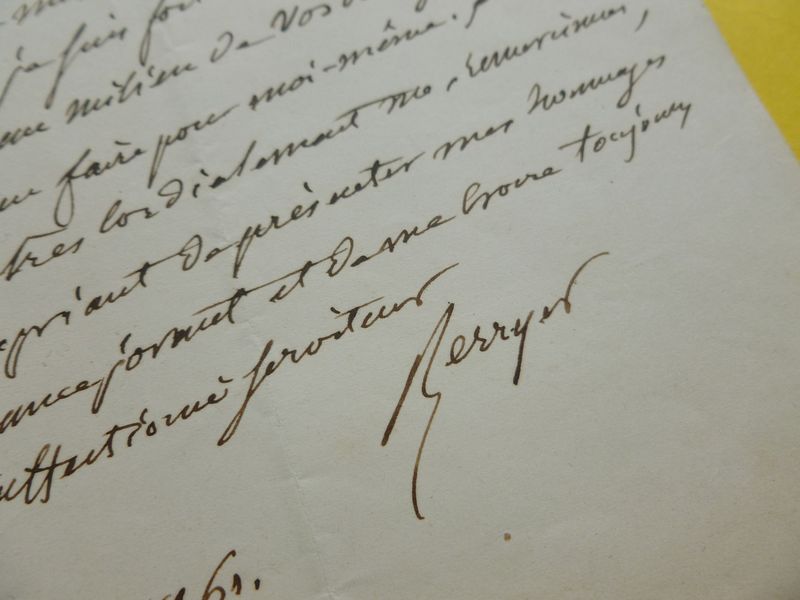 je suis
au milieu de vos
faire pour moi-même.
très cordialement me
priant de présenter mes hommages
et de me croire toujours
affectionné serviteur
Berryer
61.